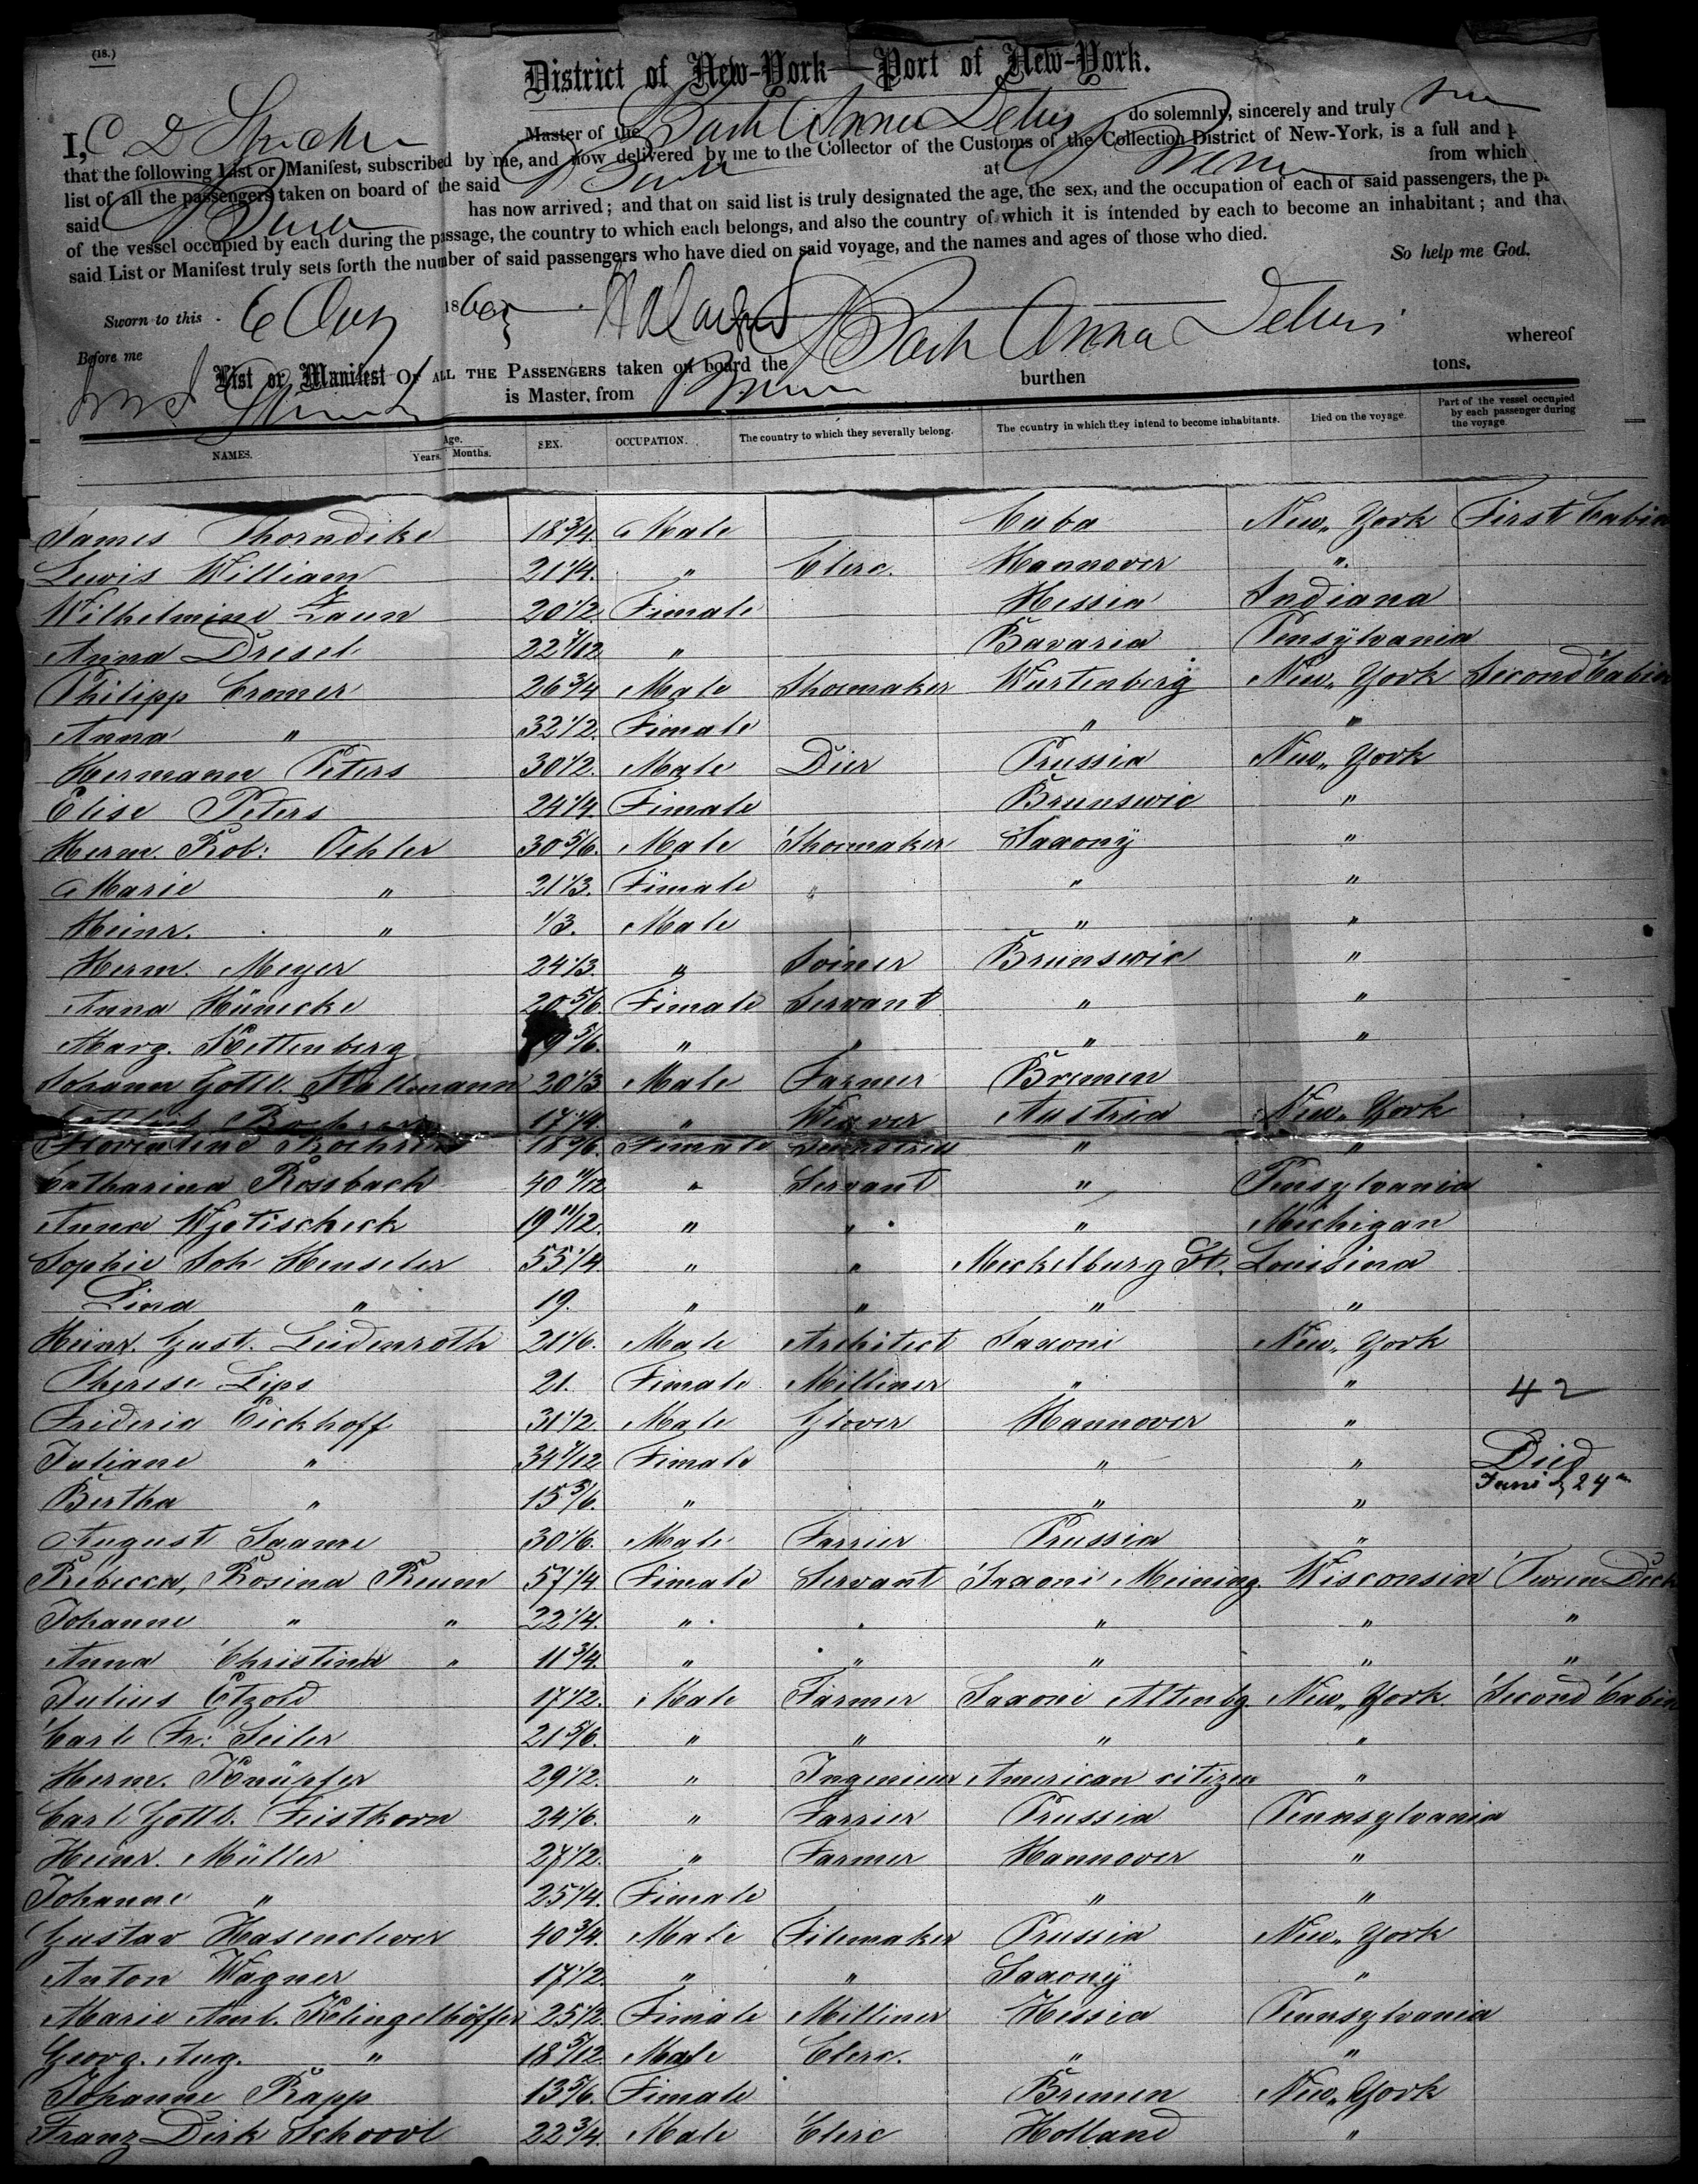 (18.)
District of New-York—Port of New-York.
I, C D Master of the Bark Anna Delius do solemnly, sincerely and truly
that the following List or Manifest, subscribed by me, and now delivered by me to the Collector of the Customs of the Collection District of New-York, is a full and
list of all the passengers taken on board of the said Bark at Bremen from which
said Bark has now arrived; and that on said list is truly designated the age, the sex, and the occupation of each of said passengers, the
of the vessel occupied by each during the passage, the country to which each belongs, and also the country of which it is intended by each to become an inhabitant; and that
said List or Manifest truly sets forth the number of said passengers who have died on said voyage, and the names and ages of those who died.
So help me God.
Sworn to this 6 186
Before me
List or Manifest OF ALL THE PASSENGERS taken on board the Bark Anna Delius whereof
is Master, from Bremen burthen tons.
NAMES. Age. Years. Months. SEX. OCCUPATION. The country to which they severally belong. The country in which they intend to become inhabitants. Died on the voyage. Part of the vessel occupied by each passenger during the voyage.
James Thorndike 18 3/4. Male Cuba New York First Cabin
Lewis William 21 1/4. " Clerc. Hannover "
Wilhelmine Zaun 20 1/2 Fimale Hessia Indiana
Anna Dresel 22 1/12 " Bavaria Pensylvania
Philipp Cromer 26 3/4 Male Shoemaker Wurtenberg New York Second Cabin
Anna " 32 1/2. Fimale " "
Hermann Peters 30 1/2. Male Dier Prussia New York
Elise Peters 24 1/4 Fimale Brunswic "
Herm. Rob: Oehler 30 5/6. Male Shoemaker Saxony "
Marie " 21 1/3. Fimale " " "
Heinr. " 1/3. Male " "
Herm. Meyer 24 1/3. " Joiner Brunswic "
Anna Hünecke 20 5/6. Fimale Servant " "
Marg. Rettenberg 9 5/6. " " " "
Johann Gottl. Stallmann 20 1/3 Male Farmer Bremen
17 1/4 " Weaver Austria New York
Florentine 18 5/6. Fimale " "
Catharina Rossbach 40 11/12 " Servant " Pensylvania
Anna Wjetischeck 19 11/12. " " " Michigan
Sophie Joh Henseler 55 1/4 " " Meckelburg St. Louisina
Lina " 19. " " " "
Heinr. Gust. Leidenroth 21 1/6. Male Architect Saxoni New York
Therese Lips 21. Fimale Milliner " " 42
Frideric Eickhoff 31 1/2. Male Glover Hannover "
Juliane " 34 1/12 Fimale " " Died
Bertha " 15 5/6. " " " Juni 24
August Saame 30 1/6. Male Farrier Prussia "
Rebecca, Rosina Reum 57 1/4 Fimale Servant Saxoni Meining. Wisconsin Tween Deck
Johanne " " 22 1/4. " " " " "
Anna Christina " 11 3/4. " " " " "
Julius Etzold 17 1/2. Male Farmer Saxoni Altenbg New York Second Cabin
Carl Fr: Seiler 21 5/6. " " " "
Herm. Knüpfer 29 1/2. " Ingenieur American citizen "
Carl Gottl. Feistkorn 24 1/6. " Farrier Prussia Pennsylvania
Heinr. Müller 27 1/2. " Farmer Hannover "
Johanne " 25 1/4. Fimale " "
Gustav Hasenclever 40 3/4. Male Filemaker Prussia New York
Anton Wagner 17 1/2. " " Saxony "
Marie Aml. Klingelhöffer 25 1/2. Fimale Milliner Hessia Pennsylvania
Georg. Aug. " 18 5/12 Male Clerc. " "
Johanne Rapp 13 5/6. Fimale Bremen New York
Franz Dirk Schoovl 22 3/4. Male Clerc Holland "